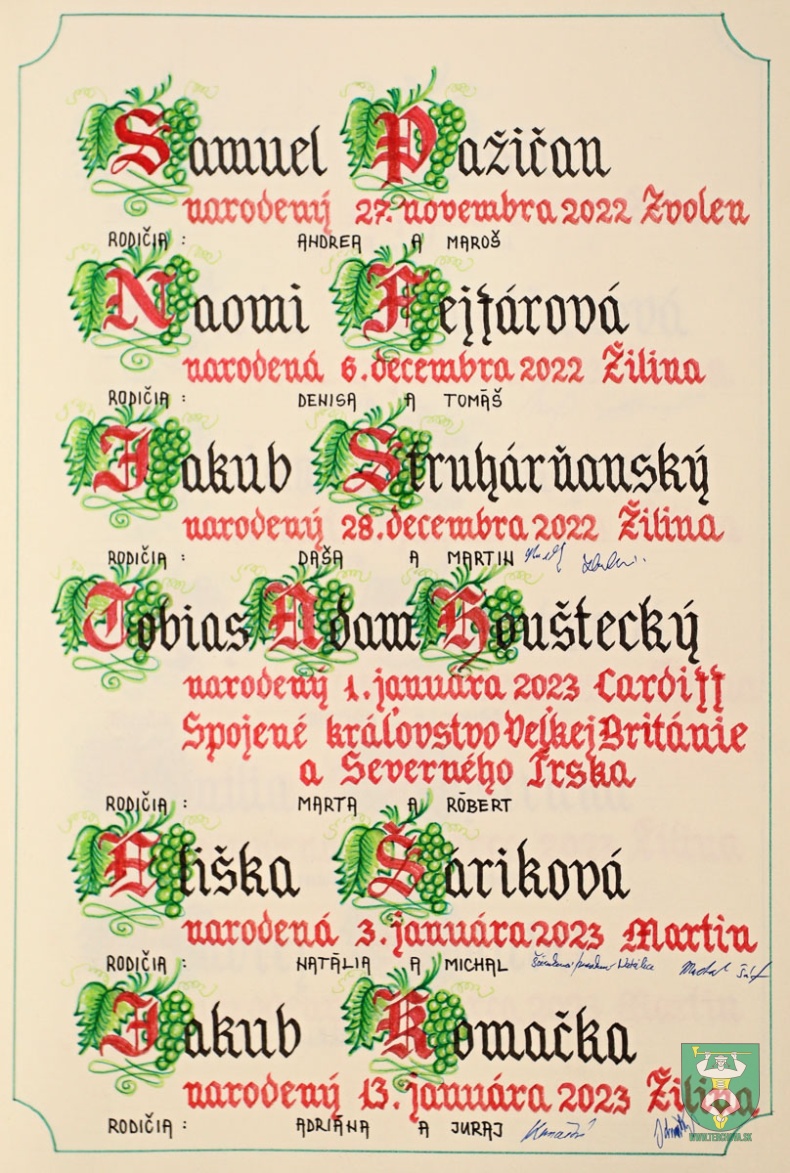 Samuel Pažičan
narodený 27. novembra 2022 Zvolen
RODIČIA : ANDREA A MAROŠ
Naomi Fejfárová
narodená 6. decembra 2022 Žilina
RODIČIA : DENISA A TOMÁŠ
Jakub Struhárňanský
narodený 28. decembra 2022 Žilina
RODIČIA : DAŠA A MARTIN
Tobias Adam Houštecký
narodený 1. januára 2023 Cardiff
Spojené kráľovstvo Veľkej Británie
a Severného Írska
RODIČIA : MARTA A RÓBERT
Eliška Šáriková
narodená 3. januára 2023 Martin
RODIČIA : NATÁLIA A MICHAL
Jakub Komačka
narodený 13. januára 2023 Žilina
RODIČIA : ADRIÁNA A JURAJ
WWW.TERCHOVA.SK